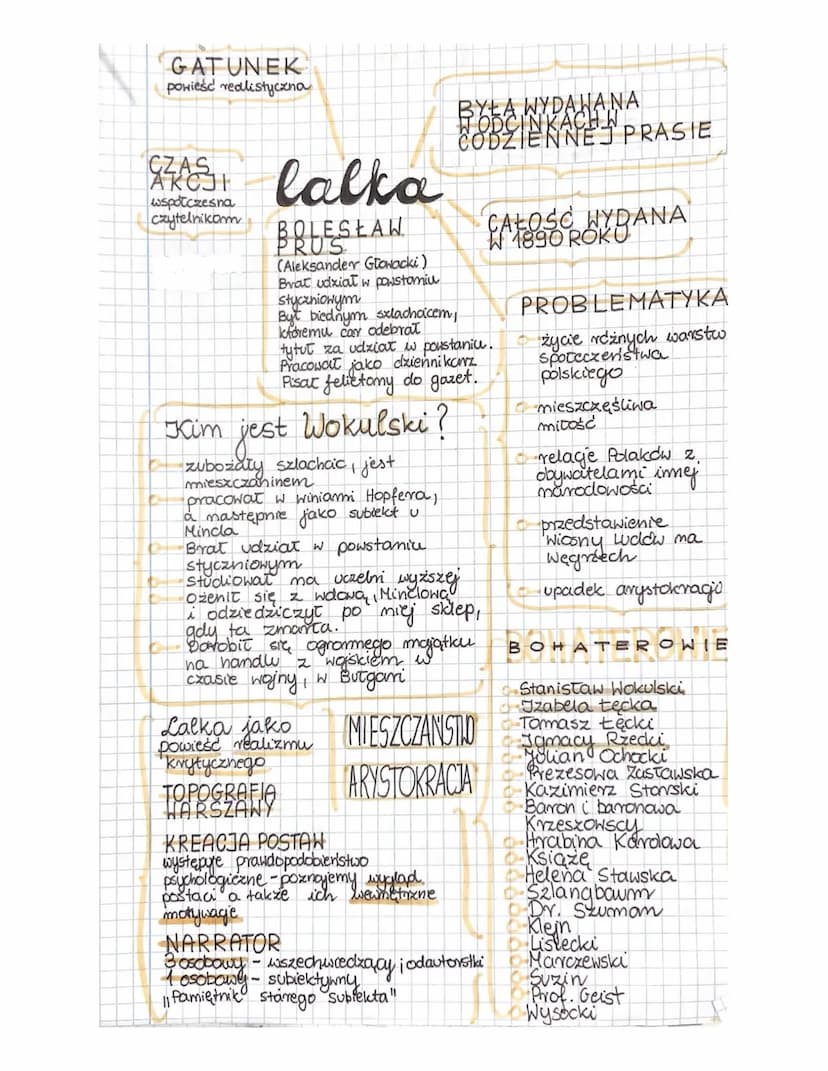 GATUNEK
powieść realistyczna
BYŁA WYDAWANA
W ODCINKACH W
CODZIENNEJ PRASIE
CZAS
AKCJI
współczesna
czytelnikom
lalka
BOLESŁAW
PRUS
(Aleksander Głowacki)
Brał udział w powstaniu
styczniowym
Był biednym szlachcicem,
któremu car odebrał
tytuł za udział w powstaniu.
Pracował jako dziennikarz
Pisał felietony do gazet.
CAŁOŚĆ WYDANA
W 1890 ROKU
PROBLEMATYKA
życie różnych warstw
społeczeństwa
polskiego
nieszczęśliwa
miłość
relacje Polaków z
obywatelami innej
narodowości
przedstawienie
Wiosny Ludów na
Węgrzech
upadek arystokracji
Kim jest Wokulski?
zubożały szlachcic, jest
mieszczaninem
pracował w winiarni Hopfera,
a następnie jako subiekt u
Mincla
Brał udział w powstaniu
styczniowym
studiował na uczelni wyższej
ożenił się z wdową Minclową
i odziedziczył po niej sklep,
gdy ta zmarła.
Dorobił się ogromnego majątku
na handlu z wojskiem w
czasie wojny, w Bułgarii
BOHATEROWIE
Stanisław Wokulski
Izabela Łęcka
Tomasz Łęcki
Ignacy Rzecki
Julian Ochocki
Prezesowa Zasławska
Kazimierz Starski
Baron i baronowa
Krzeszowscy
Hrabina Karolowa
Książę
Helena Stawska
Szlangbaum
Dr. Szuman
Klejn
Lisiecki
Maruszewski
Suzin
Prof. Geist
Wysocki
Lalka jako
powieść realizmu
krytycznego
MIESZCZAŃSTWO
ARYSTOKRACJA
TOPOGRAFIA
WARSZAWY
KREACJA POSTAW
występuje prawdopodobieństwo
psychologiczne - poznajemy wygląd
postaci a także ich wewnętrzne
motywacje
NARRATOR
3 osobowy - wszechwiedzący, odautorski
1 osobowy - subiektywny
"Pamiętnik starego subiekta"